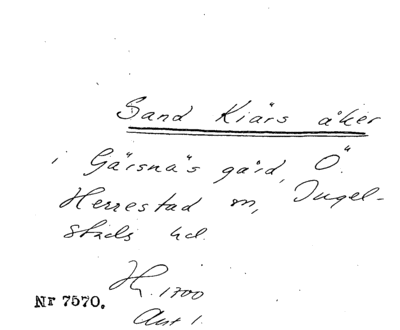 Sand Kiärs åker
i Gärsnäs gård, Ö.
Herrestad sn, Ingel-
stads hd.
H. 1700
Nr 7570.
Akt 1.